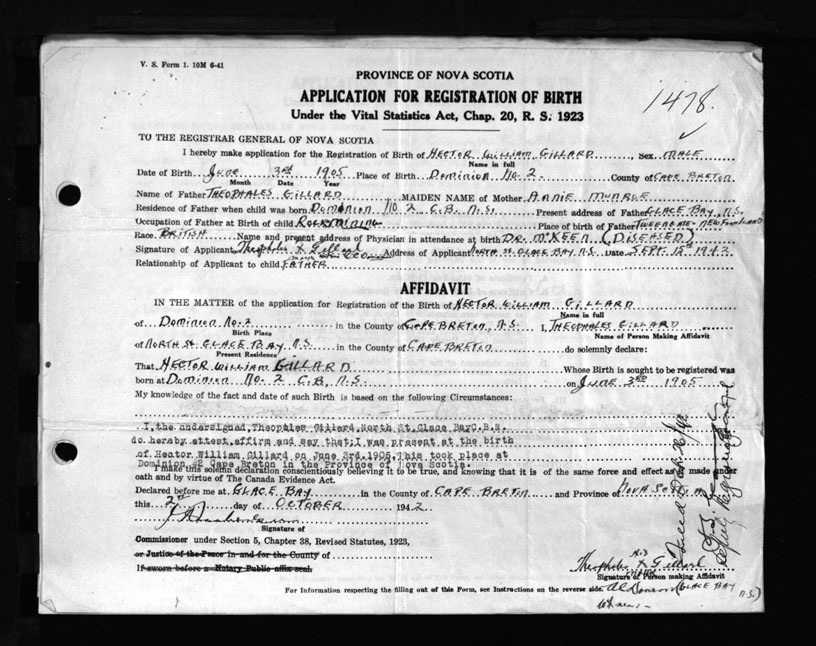 V. S. Form 1. 10M 6-41
PROVINCE OF NOVA SCOTIA
APPLICATION FOR REGISTRATION OF BIRTH
Under the Vital Statistics Act, Chap. 20, R. S. 1923
1478.
TO THE REGISTRAR GENERAL OF NOVA SCOTIA
I hereby make application for the Registration of Birth of HECTOR WILLIAM GILLARD, Sex MALE
Name in full
Date of Birth JUNE 3RD 1905 Place of Birth Dominion No. 2. County of CAPE BRETON
Month Date Year
Name of Father THEOPHALES GILLARD MAIDEN NAME of Mother ANNIE MUNROE
Residence of Father when child was born Dominion No 2 C.B. N.S. Present address of Father GLACE BAY, N.S.
Occupation of Father at Birth of child Place of birth of Father NEWFOUNDLAND
Race BRITISH Name and present address of Physician in attendance at birth DR. McKEEN (DISEASED)
Signature of Applicant Theophales X Gillard Address of Applicant NORTH St. GLACE BAY N.S. Date SEPT. 15 1942
Relationship of Applicant to child FATHER
AFFIDAVIT
IN THE MATTER of the application for Registration of the Birth of HECTOR WILLIAM GILLARD
Name in full
of Dominion No. 2 in the County of CAPE BRETON, N.S. I, THEOPHALES GILLARD
Birth Place Name of Person Making Affidavit
of NORTH St. GLACE BAY N.S. in the County of CAPE BRETON do solemnly declare:
Present Residence
That HECTOR WILLIAM GILLARD Whose Birth is sought to be registered was
born at Dominion No. 2 C.B. N.S. on JUNE 3RD 1905
My knowledge of the fact and date of such Birth is based on the following Circumstances:
I the undersigned, Theopales Gillard, North St. Glace Bay C.B.N.
do hereby attest, affirm and say that; I was present at the birth
of Hector William Gillard on June 3rd. 1905. This took place at
Dominion #2 Cape Breton in the Province of Nova Scotia.
I make this solemn declaration conscientiously believing it to be true, and knowing that it is of the same force and effect as if made under
oath and by virtue of The Canada Evidence Act.
Declared before me at GLACE BAY in the County of CAPE BRETON and Province of NOVA SCOTIA
this 2nd day of OCTOBER 1942
Signature of
Commissioner under Section 5, Chapter 38, Revised Statutes, 1923,
or Justice of the Peace in and for the County of
If sworn before a Notary Public affix seal.
His
Theophales X Gillard
Signature of Person making Affidavit
For Information respecting the filling out of this Form, see Instructions on the reverse side.
GLACE BAY N.S.
Witness
Deputy Registrar